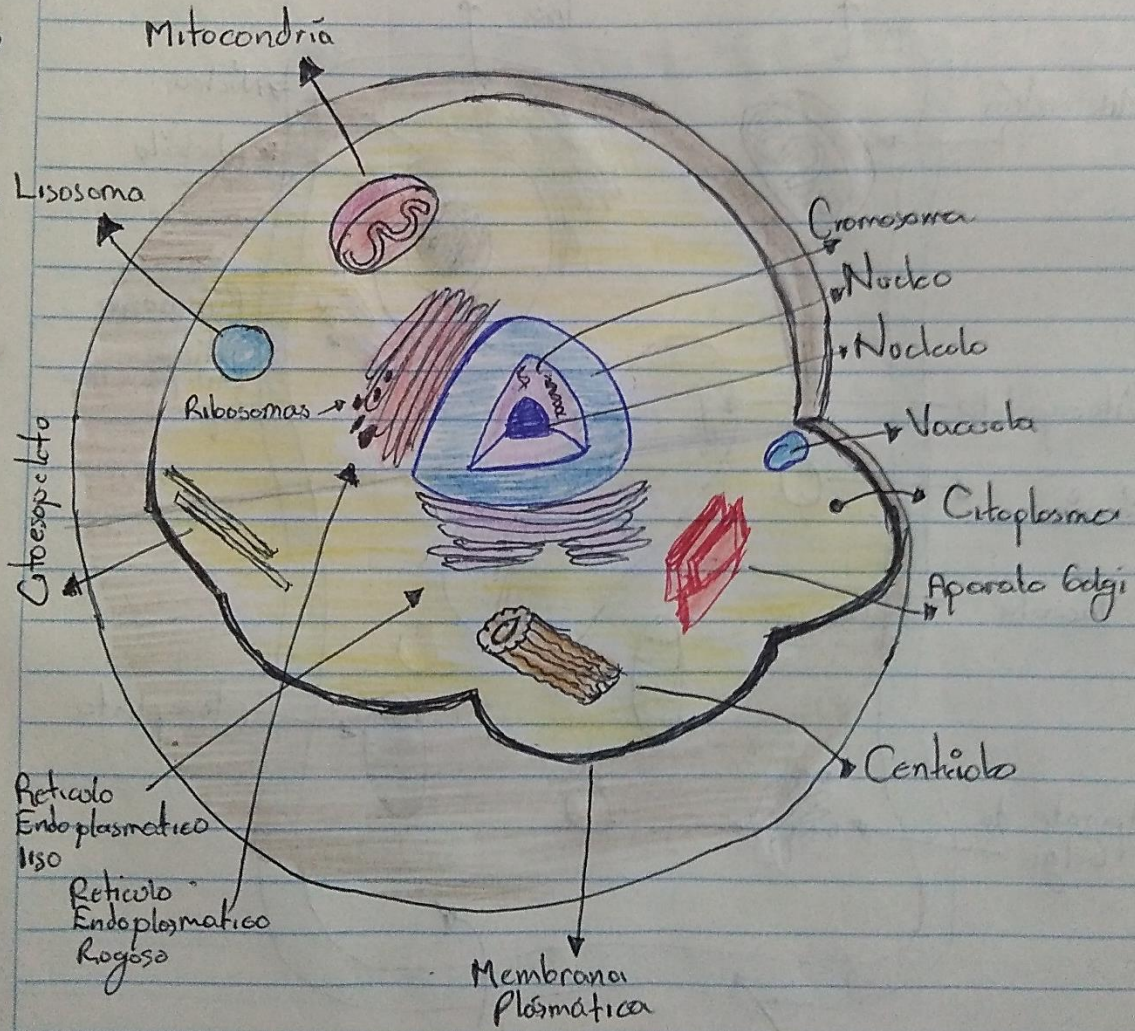 Mitocondría
Lisosoma
Cromosoma
Nucleo
Nucleolo
Ribosomas
Vacuola
Citoesqueleto
Citoplasma
Aparato Golgi
Centriolo
Reticulo
Endoplasmatico
liso
Reticulo
Endoplasmatico
Rogoso
Membrana
Plásmática